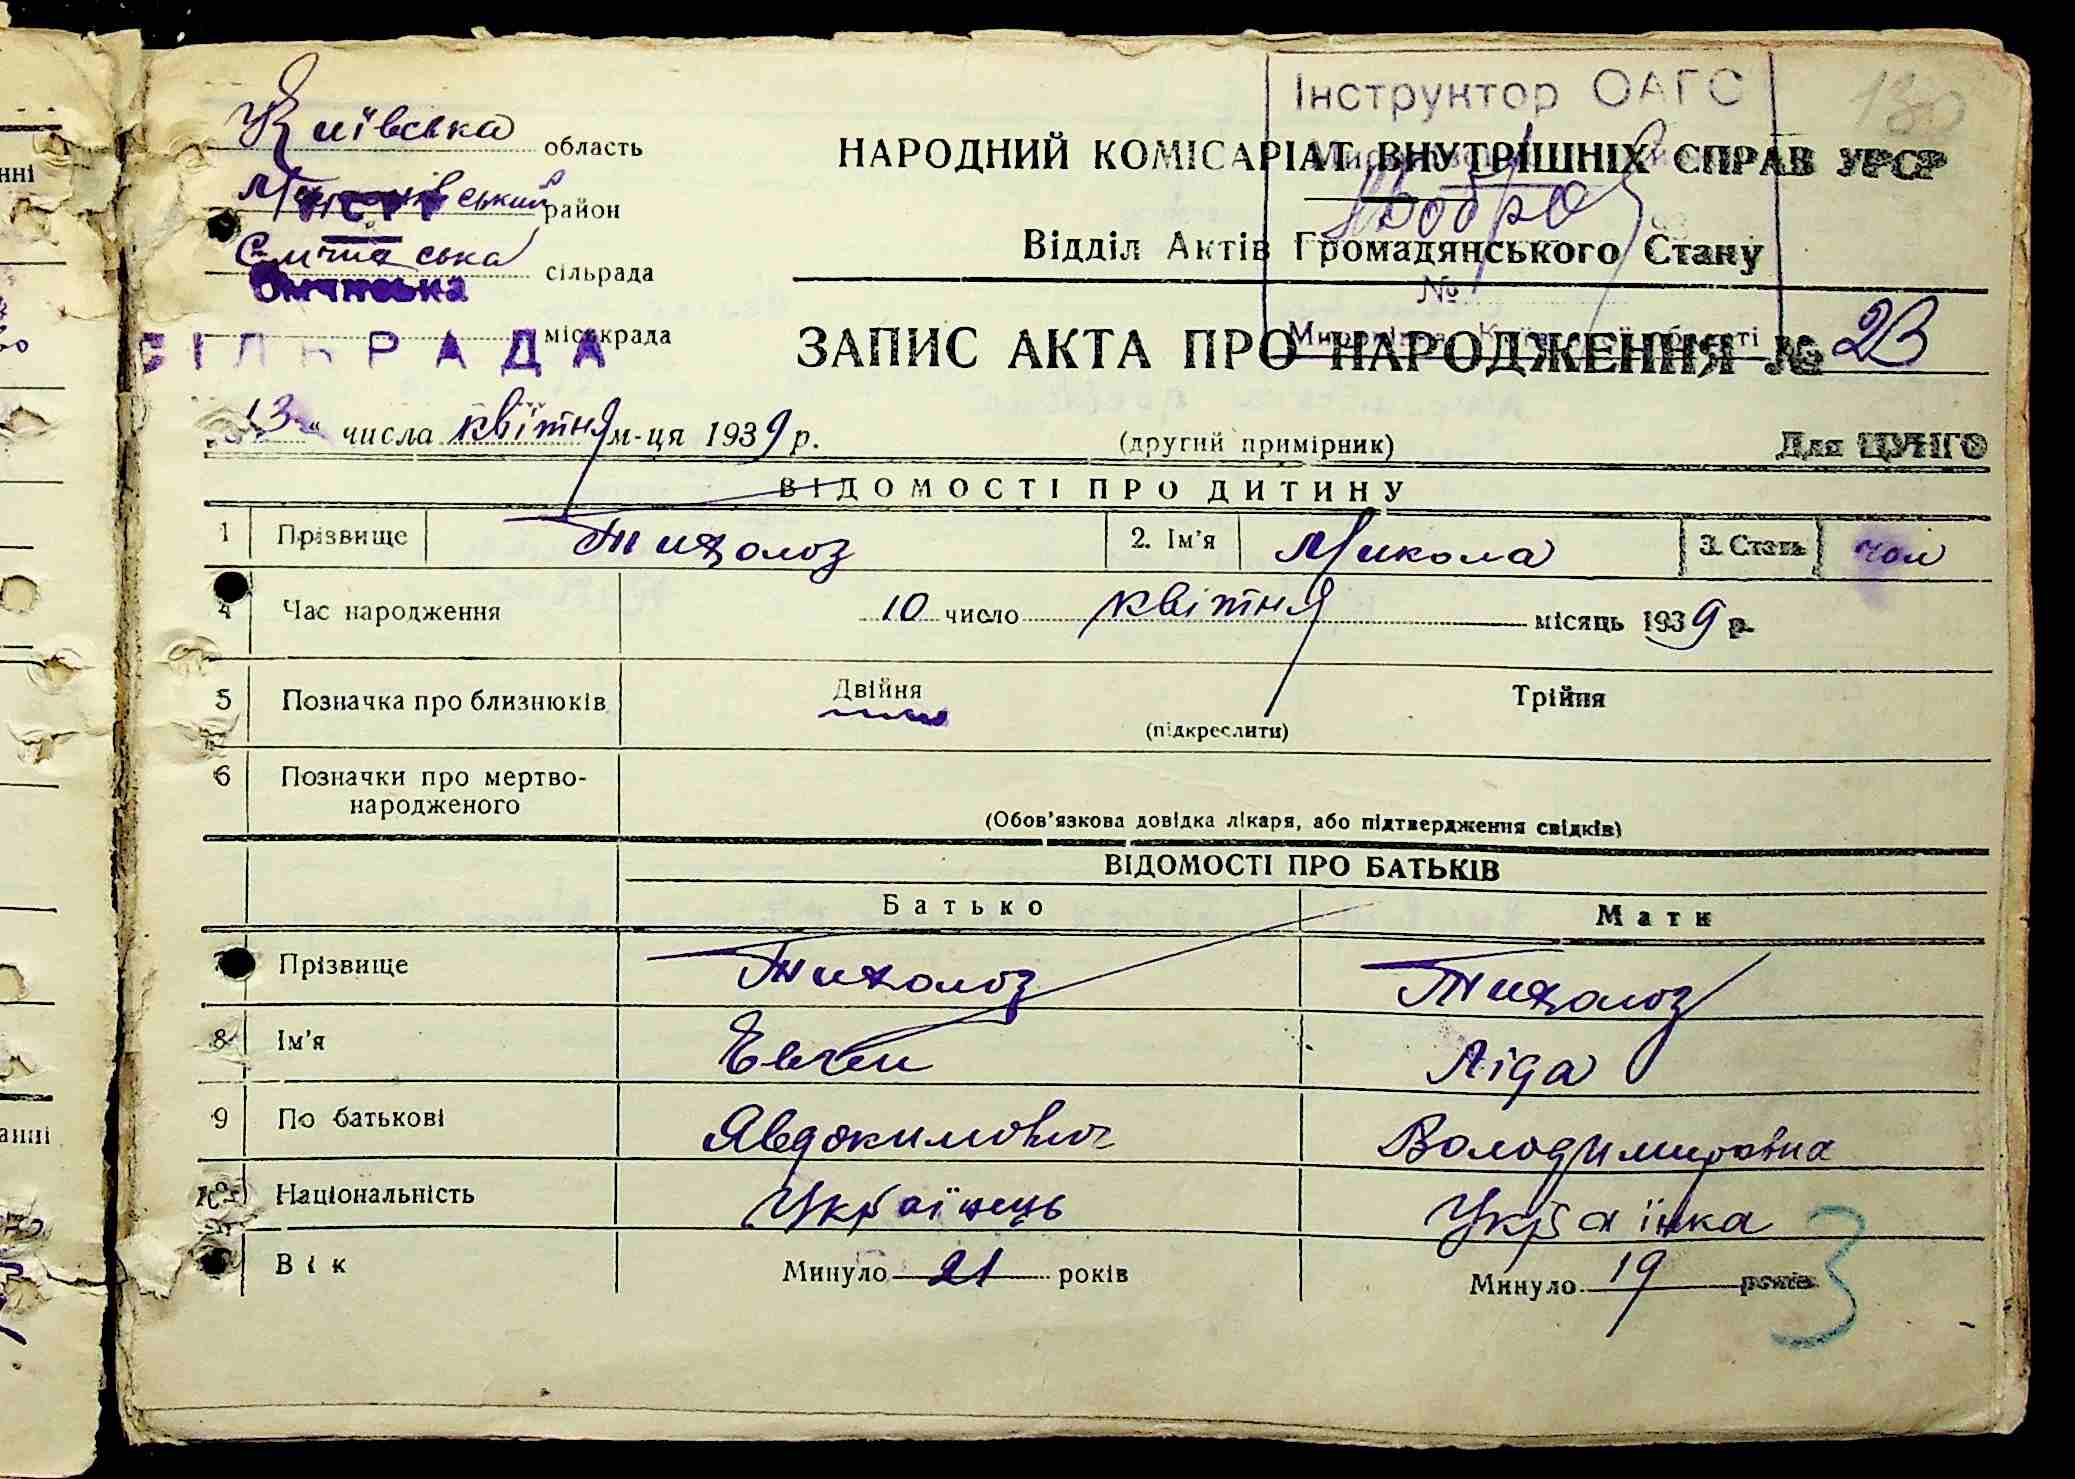 Інструктор ОАГС
130
Київська область
НАРОДНИЙ КОМІСАРІАТ ВНУТРІШНІХ СПРАВ УРСР
Миронівський район
УСРР
Відділ Актів Громадянського Стану
ська сільрада
№
міськрада
СІЛЬРАДА
ЗАПИС АКТА ПРО НАРОДЖЕННЯ № 23
13 " числа квітня м-ця 1939 р.
(другий примірник)
Для ЦУНГО
ВІДОМОСТІ ПРО ДИТИНУ
1 Прізвище Тихолоз 2. Ім'я Микола 3. Стать чол
4 Час народження 10 число квітня місяць 1939 р.
5 Позначка про близнюків Двійня Трійня
(підкреслити)
6 Позначки про мертво-
народженого
(Обов'язкова довідка лікаря, або підтвердження свідків)
ВІДОМОСТІ ПРО БАТЬКІВ
Батько Мати
Прізвище Тихолоз Тихолоз
8 Ім'я Евген Ліда
9 По батькові Явдокимович Володимировна
10 Національність Українець Українка
Вік Минуло 21 років Минуло 19 років
3